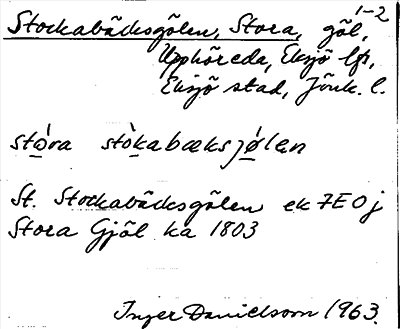 Stockabäcksgölen, Stora, göl, 1-2
Upphöreda, Eksjö lfs,
Eksjö stad, Jönk. l.
stòra stòkabæksjø̀len
St. Stockabäcksgölen ek 7E0j
Stora Gjöl ka 1803
Inger Danielsson 1963.